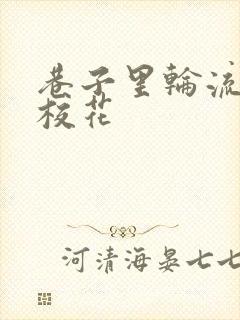 巷子里輪流
校花
河清海晏七七